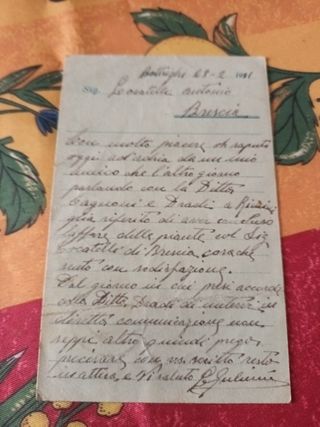 28-2
Sig. Locatelli Antonio
Brescia
Con molto piacere ho saputo
oggi da un mio
amico che l'altro giorno
parlando con la Ditta
Cagnoni e Dradi a
riferito di aver in corso
l'affare delle piante col Sig
Locatelli di Brescia, cosa che
con sodisfazione.
Dal giorno in cui presi accordi
colla Ditta Dradi di mettersi in
diretta comunicazione non
seppi altro quindi prego
precisarmi con resto
in attesa, e Vi saluto